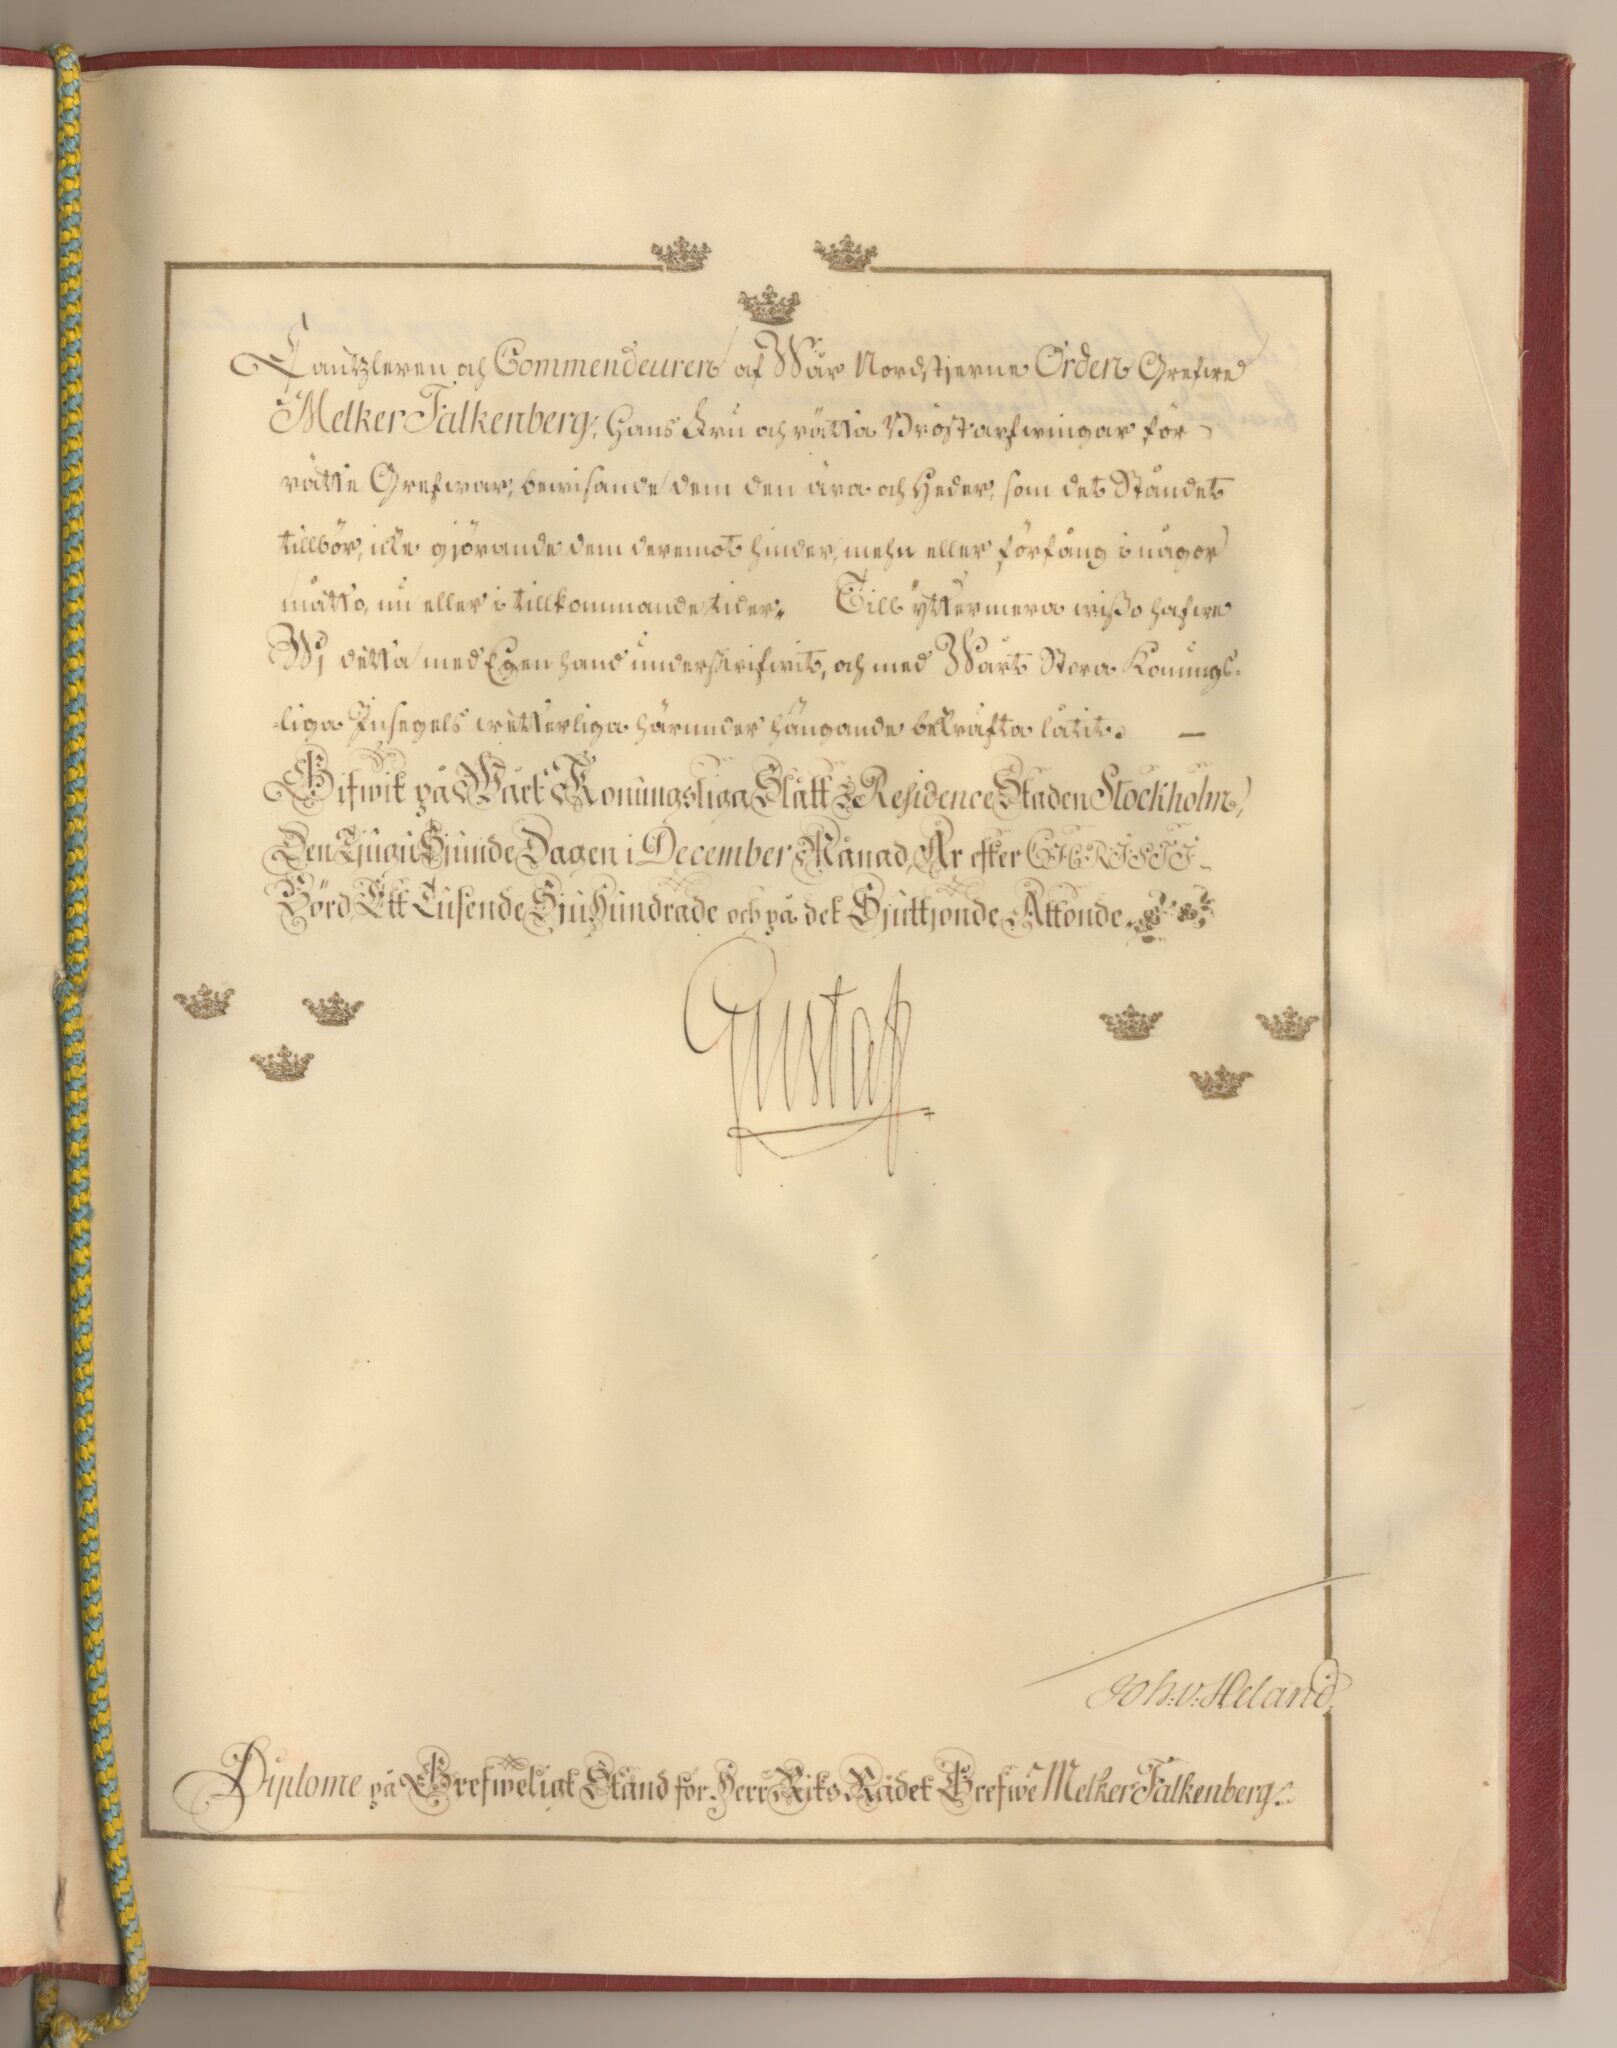 Cantzleren och Commendeuren af Wår Nordstjerne Orden Grefwe
Melker Falkenberg, Hans Fru och rätta Bröstarfwingar för
rätte Grefwar, bewisande dem den ära och heder, som det Ståndet
tillhör, icke gjörande dem deremot hinder, mehn eller förfång i någor
måtto, nu eller i tillkommande tider. Till yttermera wisso hafwe
Wi detta med Egen hand underskrifwit, och med Wårt Stora Konungs-
-liga Insegels wetterliga härunder hängande bekräfta låtit.
Gifwit på Wårt Konungsliga Slått i Residence Staden Stockholm,
Den Tjugu Sjunde Dagen i December Månad, År efter CHRISTI
Börd Ett Tusende Sju Hundrade och på det Sjuttjonde Åttonde
Gustaf
Joh: v: Heland
Diplome på Grefweligt Stånd för Herr Riks Rådet Grefwe Melker Falkenberg